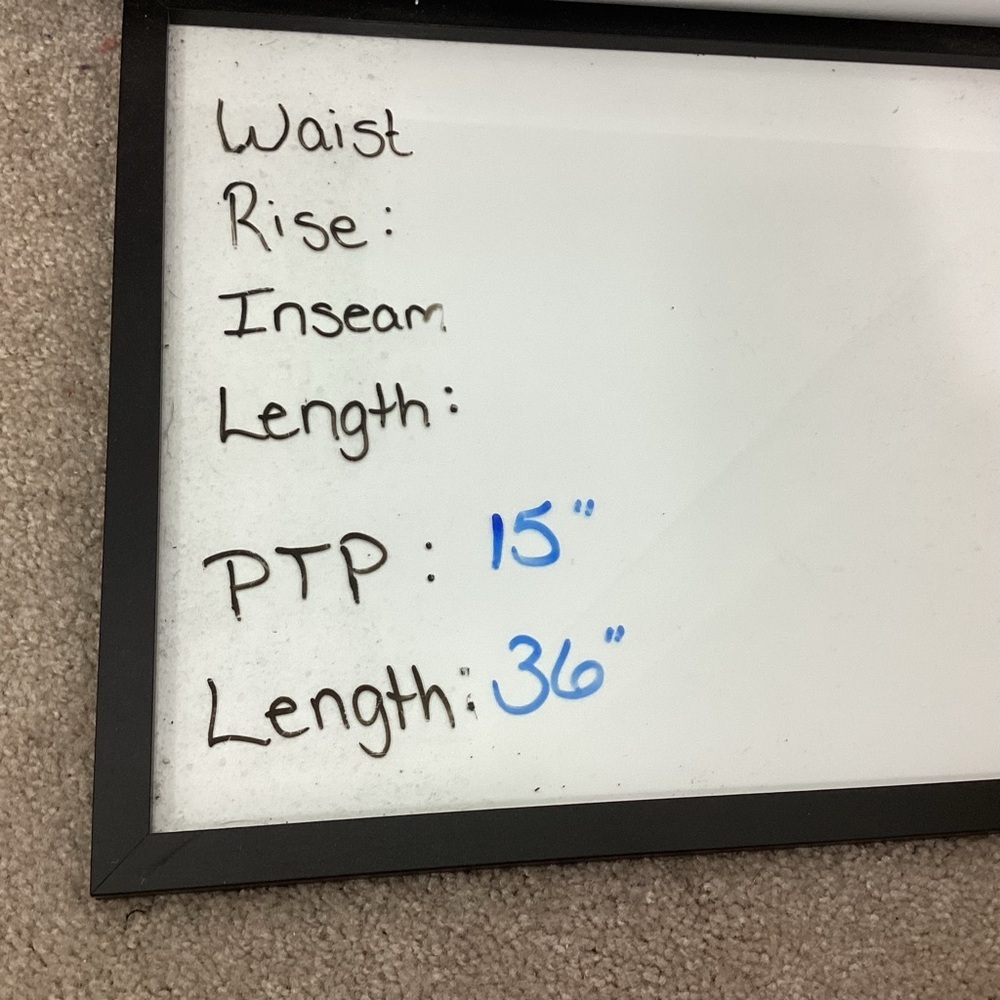 Waist
Rise:
Inseam
Length:
PTP: 15"
Length: 36"